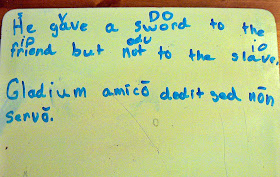 V DO
He gave a sword to the
io adv io
friend but not to the slave.
Gladium amicō dedit sed nōn
servō.